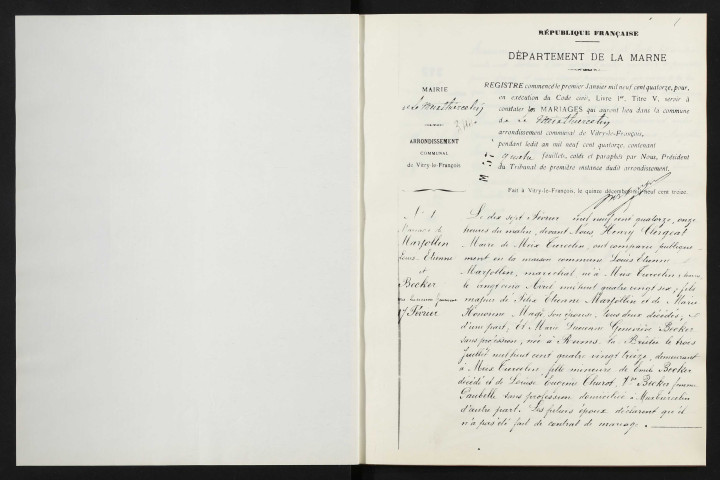 RÉPUBLIQUE FRANÇAISE
DÉPARTEMENT DE LA MARNE
MAIRIE
ARRONDISSEMENT
COMMUNAL
de Vitry-le-François
REGISTRE commencé le premier Janvier mil neuf cent quatorze, pour,
en exécution du Code civil, Livre Ier, Titre V, servir à
constater les MARIAGES qui auront lieu dans la commune
de
arrondissement communal de Vitry-le-François,
pendant ledit an mil neuf cent quatorze, contenant
feuillets, cotés et paraphés par Nous, Président
du Tribunal de première instance dudit arrondissement.
Fait à Vitry-le-François, le quinze décembre mil neuf cent treize.
N° 1
Marjollin
Louis Etienne
et
Becker
17 Février
Le dix sept Février mil neuf cent quatorze, onze
heures du matin, devant Nous Henry Clergeat
Maire de Meix Tiercelin, ont comparu publique-
ment en la maison commune Louis Etienne
Marjollin, maréchal, né à Meix Tiercelin,
le vingt cinq Avril mil huit cent quatre vingt six; fils
majeur de Félix Etienne Marjollin et de Marie
Honorine son épouse, tous deux décédés,
d'une part, Et Marie Lucienne Geneviève Becker
sans profession, née à Reims la le trois
Juillet mil huit cent quatre vingt treize, demeurant
à Meix Tiercelin, fille mineure de Emile Becker
décédé et de Louise Eugénie Churot, Vve Becker femme
Gaubelle sans profession domiciliée à
d'autre part. Les futurs époux déclarent qu'il
n'a pas été fait de contrat de mariage.